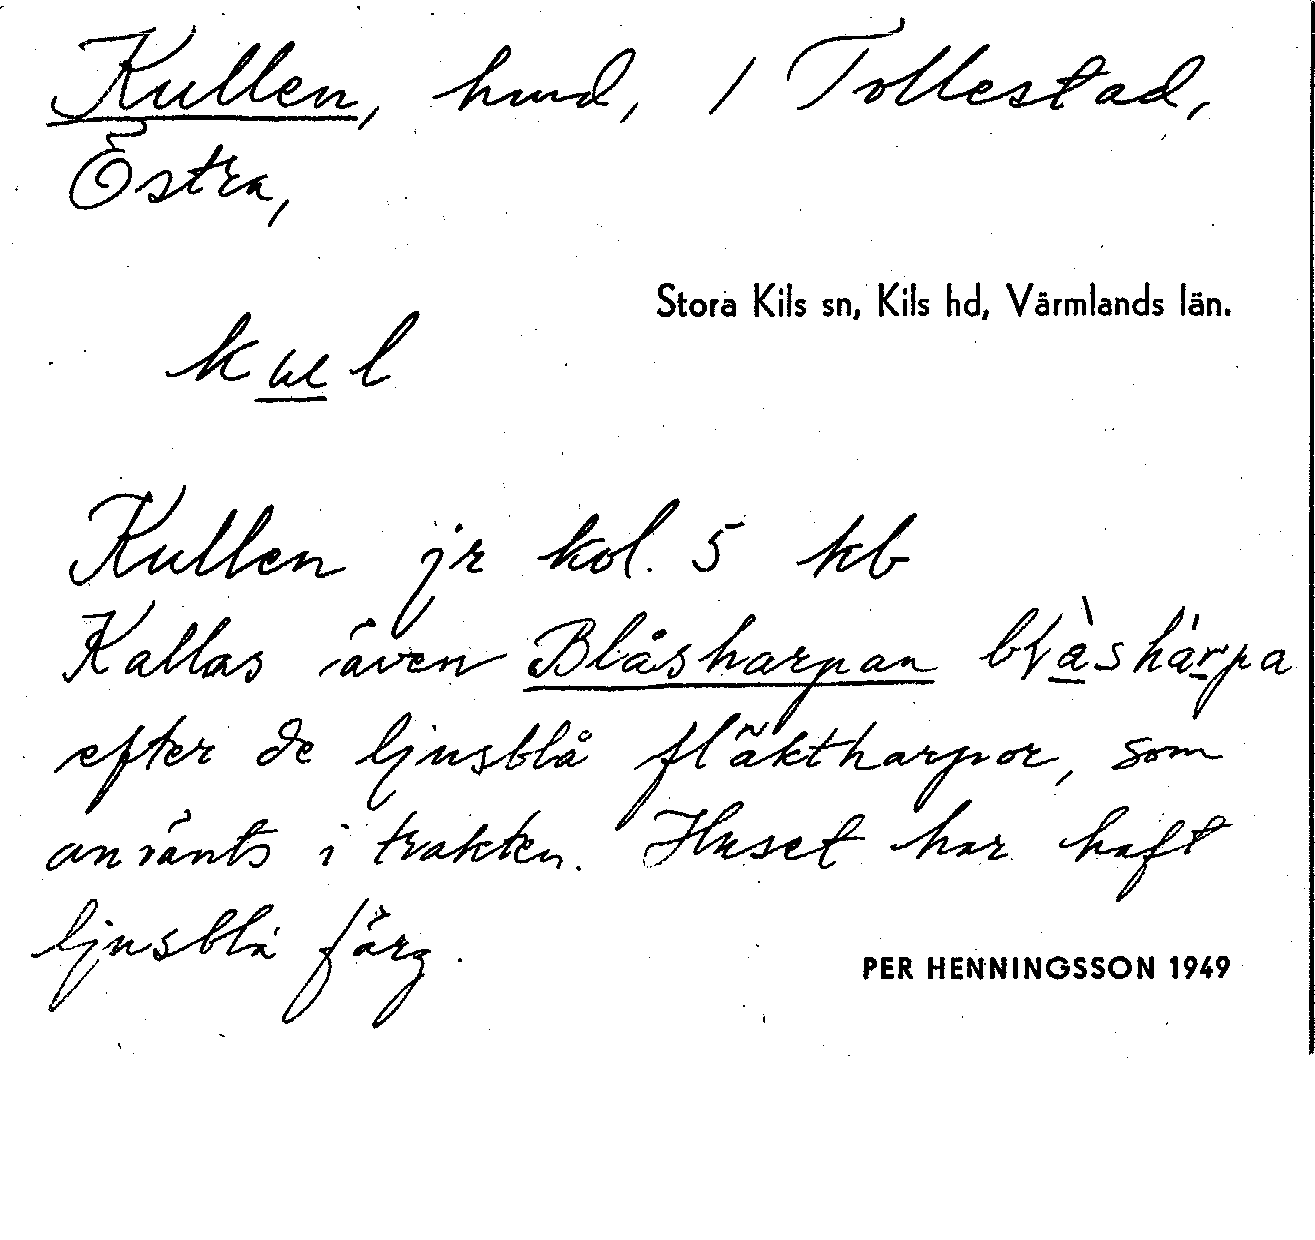 Kullen, hmd, 1 Tollestad,
Östra,
Stora Kils sn, Kils hd, Värmlands län.
Kullen jr kol. 5 kb
Kallas även Blåsharpan blàshárpa
efter de ljusblå fläktharpor, som
använts i trakten. Huset har haft
ljusblå färg.
PER HENNINGSSON 1949